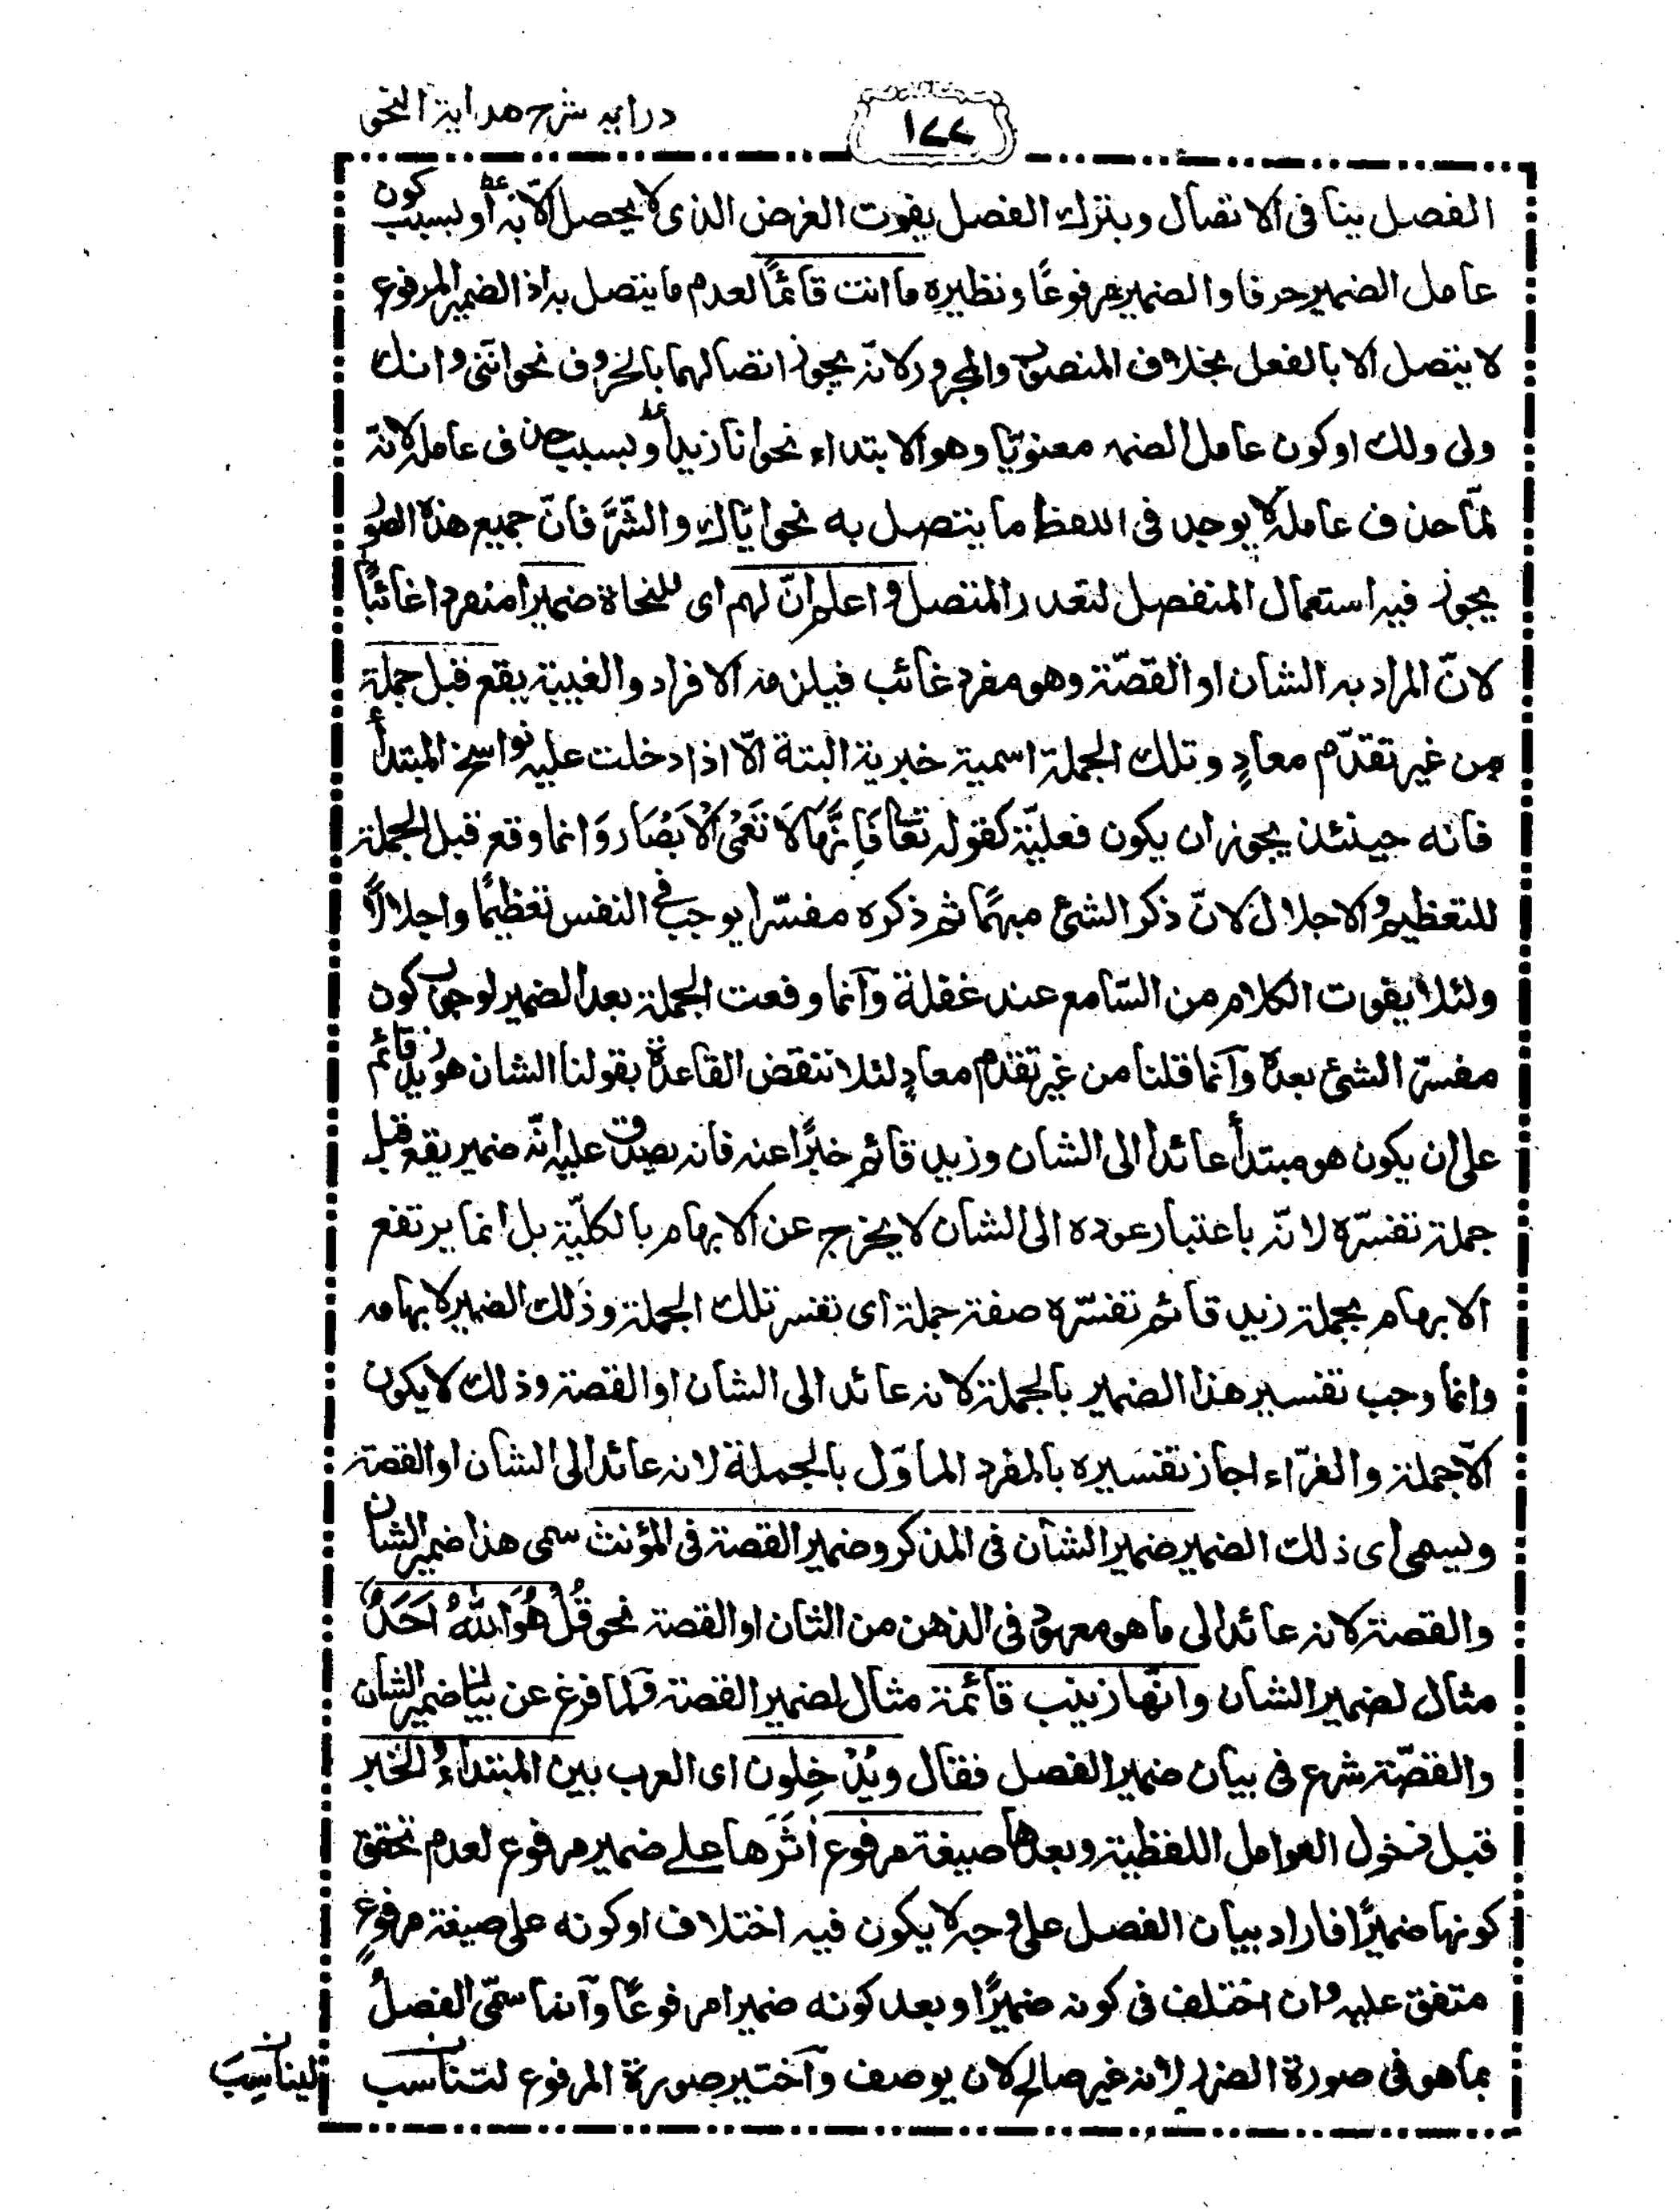 درايه شرح هداية النحو
١٧٧
الفصل ينافى الاتصال وبترك الفصل يفوت الغرض الذى لا يحصل الا به او بسبب كون
عامل الضمير حرفا والضمير مرفوعًا ونظيره ما انت قائمًا لعدم ما يتصل به اذ الضمير المرفوع
لا يتصل الا بالفعل بخلاف المنصوب والمجرور لانه يجوز اتصالهما بالحروف نحو اننى وانك
ولى ولك او كون عامل الضمير معنويّا وهو الابتداء نحو انا زيد او بسبب حذف عامله لانه
لمّا حذف عامله لا يوجد فى اللفظ ما يتصل به نحو ايّاك والشّرَّ فانّ جميع هذه الصور
يجوز فيه استعمال المنفصل لتعذر المتصل واعلم انّ لهم اى للنحاة ضميرا منفردا غائبًا
لانّ المراد به الشان او القصّة وهو مفرد غائب فيلزمه الافراد والغيبة يقع قبل جملة
من غير تقدّم معادٍ وتلك الجملة اسمية خبرية البتة الّا اذا دخلت عليه نواسخ المبتدأ
فانه حينئذ يجوز ان يكون فعليّة كقوله تعا فَاِنَّهَا لَا تَعْمَى الْاَبْصَار وَانما وقع قبل الجملة
للتعظيم والاجلال لانّ ذكر الشئ مبهمًا ثم ذكره مفسّرا يوجب فى النفس تعظيمًا واجلالًا
ولئلا يفوت الكلام من السّامع عند غفلة وآنما وقعت الجملة بعد الضمير لوجوب كون
مفسّر الشئ بعده وآنما قلنا من غير تقدم معادٍ لئلا تنقض القاعدة بقولنا الشان هو زيد قائم
على ان يكون هو مبتدأ عائدا الى الشان وزيد قائم خبرًا عنه فانه يصدق عليه انّه ضمير يقع قبل
جملة تفسّره لانّه باعتبار عوده الى الشان لا يخرج عن الابهام بالكليّة بل انما يرتفع
الابهام بجملة زيد قائم تفسّره صفة جملة اى تفسر تلك الجملة وذلك الضمير لابهامه
وانما وجب تفسير هذا الضمير بالجملة لانه عائد الى الشان او القصة وذلك لا يكون
الّا جملة والفرّاء اجاز تفسيره بالمفرد الماوّل بالجملة لانه عائد الى الشان او القصة
ويسمى اى ذلك الضمير ضمير الشان فى المذكر وضمير القصة فى المؤنث سمى هذا ضمير الشان
والقصة لانه عائد الى ما هو معهود فى الذهن من الشان او القصة نحو قُلْ هُوَ اللّٰهُ اَحَدٌ
مثال لضمير الشان وانّها زينب قائمة مثال لضمير القصة ولما فرغ عن بيان ضمير الشان
والقصّة شرع فى بيان ضمير الفصل فقال ويُدْخِلون اى العرب بين المبتداء والخبر
قبل دخول العوامل اللفظية وبعدها صيغة مرفوع اٰثَرَها على ضمير مرفوع لعدم تحقق
كونها ضميرًا فاراد بيان الفصل على وجه لا يكون فيه اختلاف او كونه على صيغة مرفوعٍ
متفق عليه وان اختلف فى كونه ضميرًا وبعد كونه ضميرا مرفوعًا وآنما سمّى الفصلُ
بما هو فى صورة الضمير لانه غير صالح لان يوصف وآختير صورة المرفوع لتناسب
ليناسِبَ